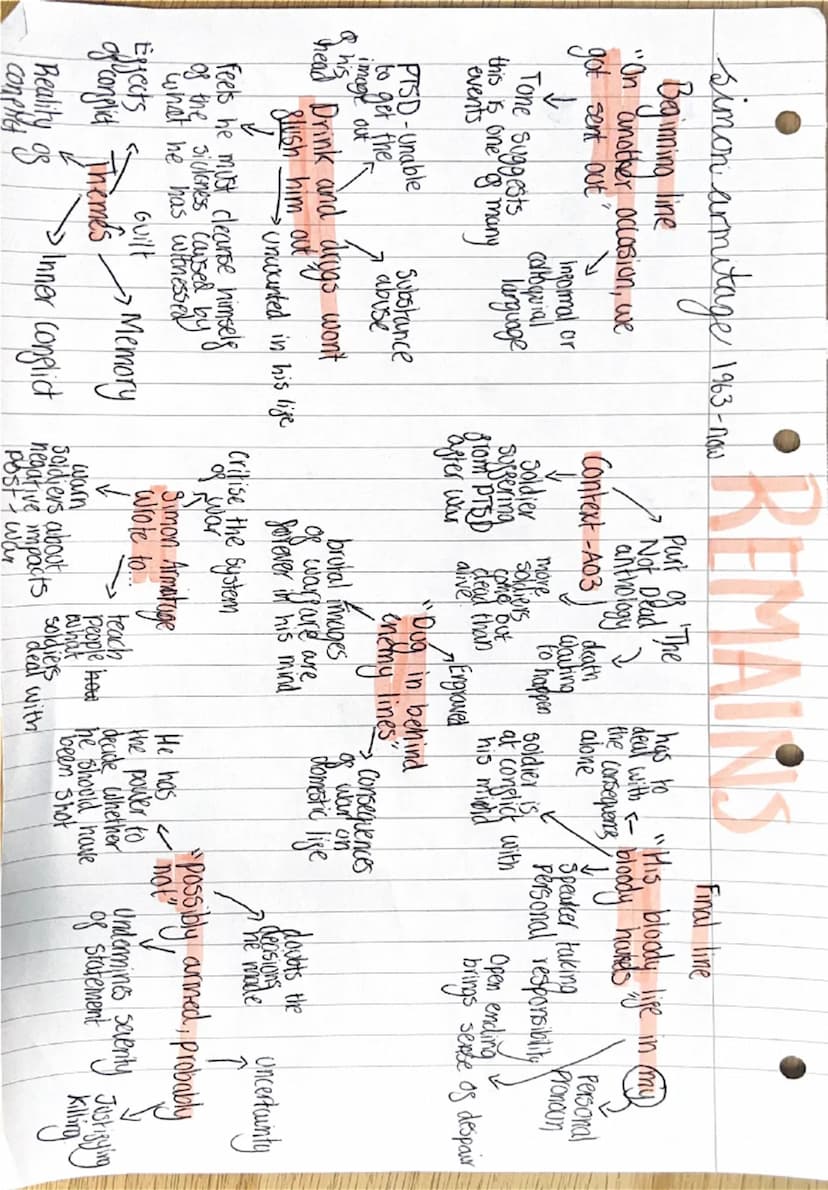 Simon armitage 1963-now
REMAINS
Beginning line
"On another occasion, we
got sent out"
Tone suggests
this is one of many
events
Informal or
colloquial
language
PTSD-unable
to get the
image out
of his
head
Substance
abuse
Drink and drugs won't
flush him out"
unwanted in his life
Feels he must cleanse himself
of the sickness caused by
what he has witnessed
Themes
Effects
of conflict
Guilt
Memory
Reality of
conflict
Inner conflict
Context-A03
Part of 'The
Not Dead'
anthology
death
waiting
to happen
more
soldiers
come out
dead than
alive
soldier
suffering
from PTSD
after war
"Dug in behind
enemy lines"
Engraved
brutal images
of warfare are
forever in his mind
Consequences
of war on
domestic life
Simon Armitage
wrote to...
critise the system
of war
warn
soldiers about
negative impacts
post-war
teach
people
what
soldiers
deal with
Final line
"His bloody life in my
bloody hands"
has to
deal with
the consequens
alone
soldier is
at conflict with
his mind
Speaker taking
personal responsibility
Personal
pronoun
Open ending
brings sense of despair
"Possibly armed, probably
not"
He has
the power to
decide whether
he should have
been shot
doubts the
decisions
he made
uncertainty
Undermines severity
of statement
Justifying
killing